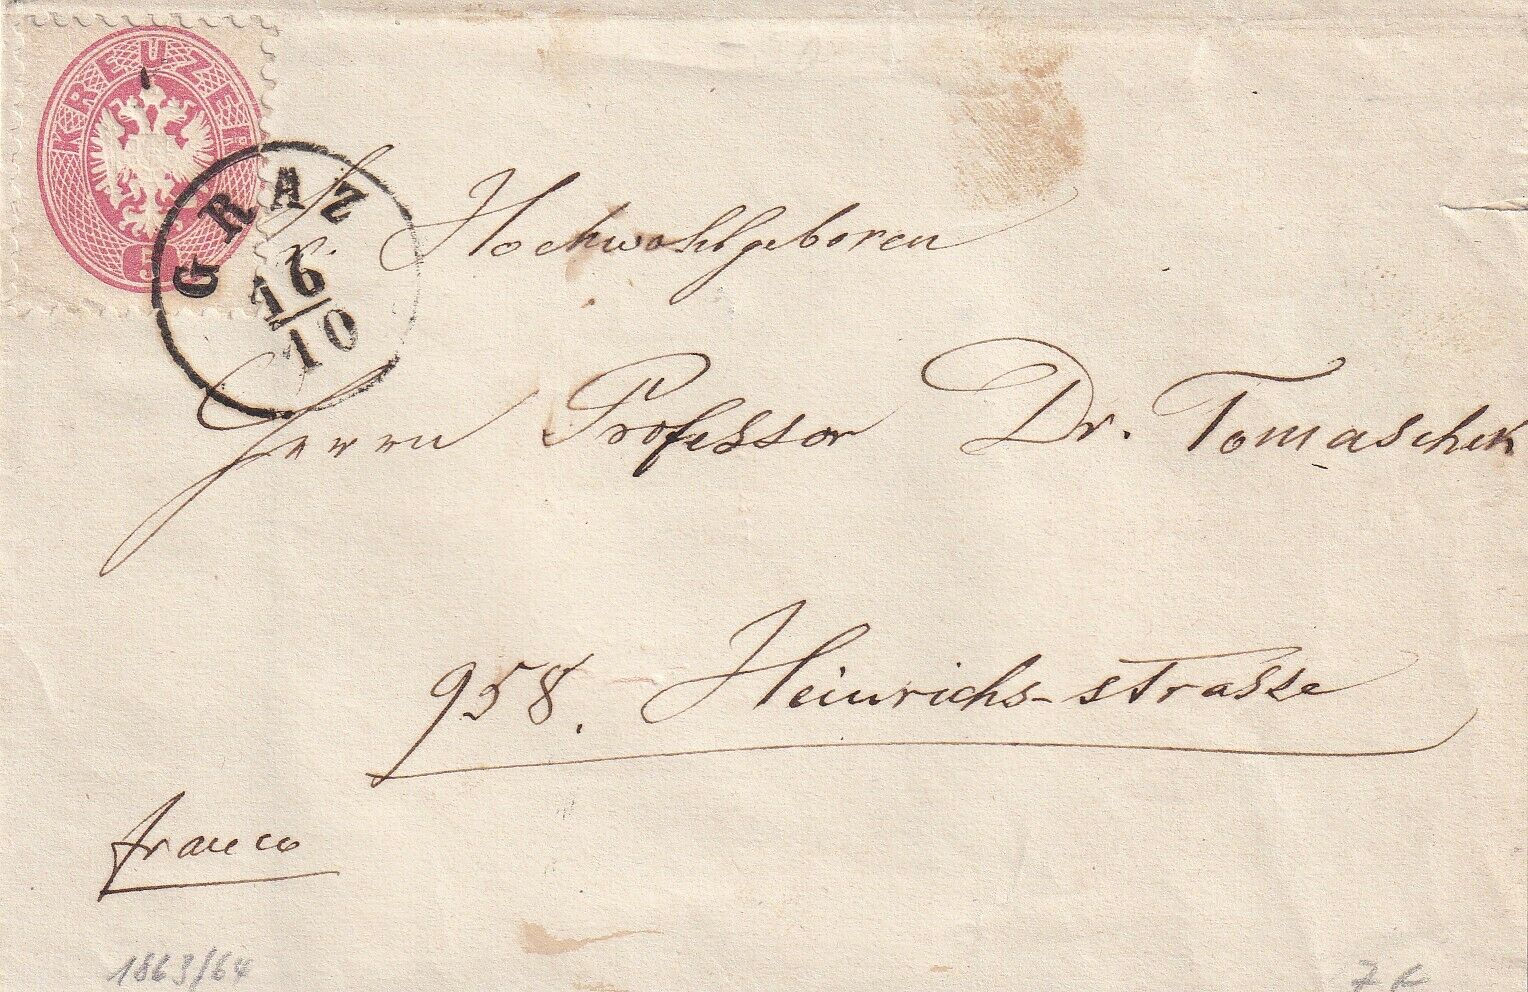 KREUZER
5
GRAZ
16
10
Sr. Hochwohlgeboren
Herrn Professor Dr. Tomaschek
958. Heinrichs-strasse
franco
1863/64